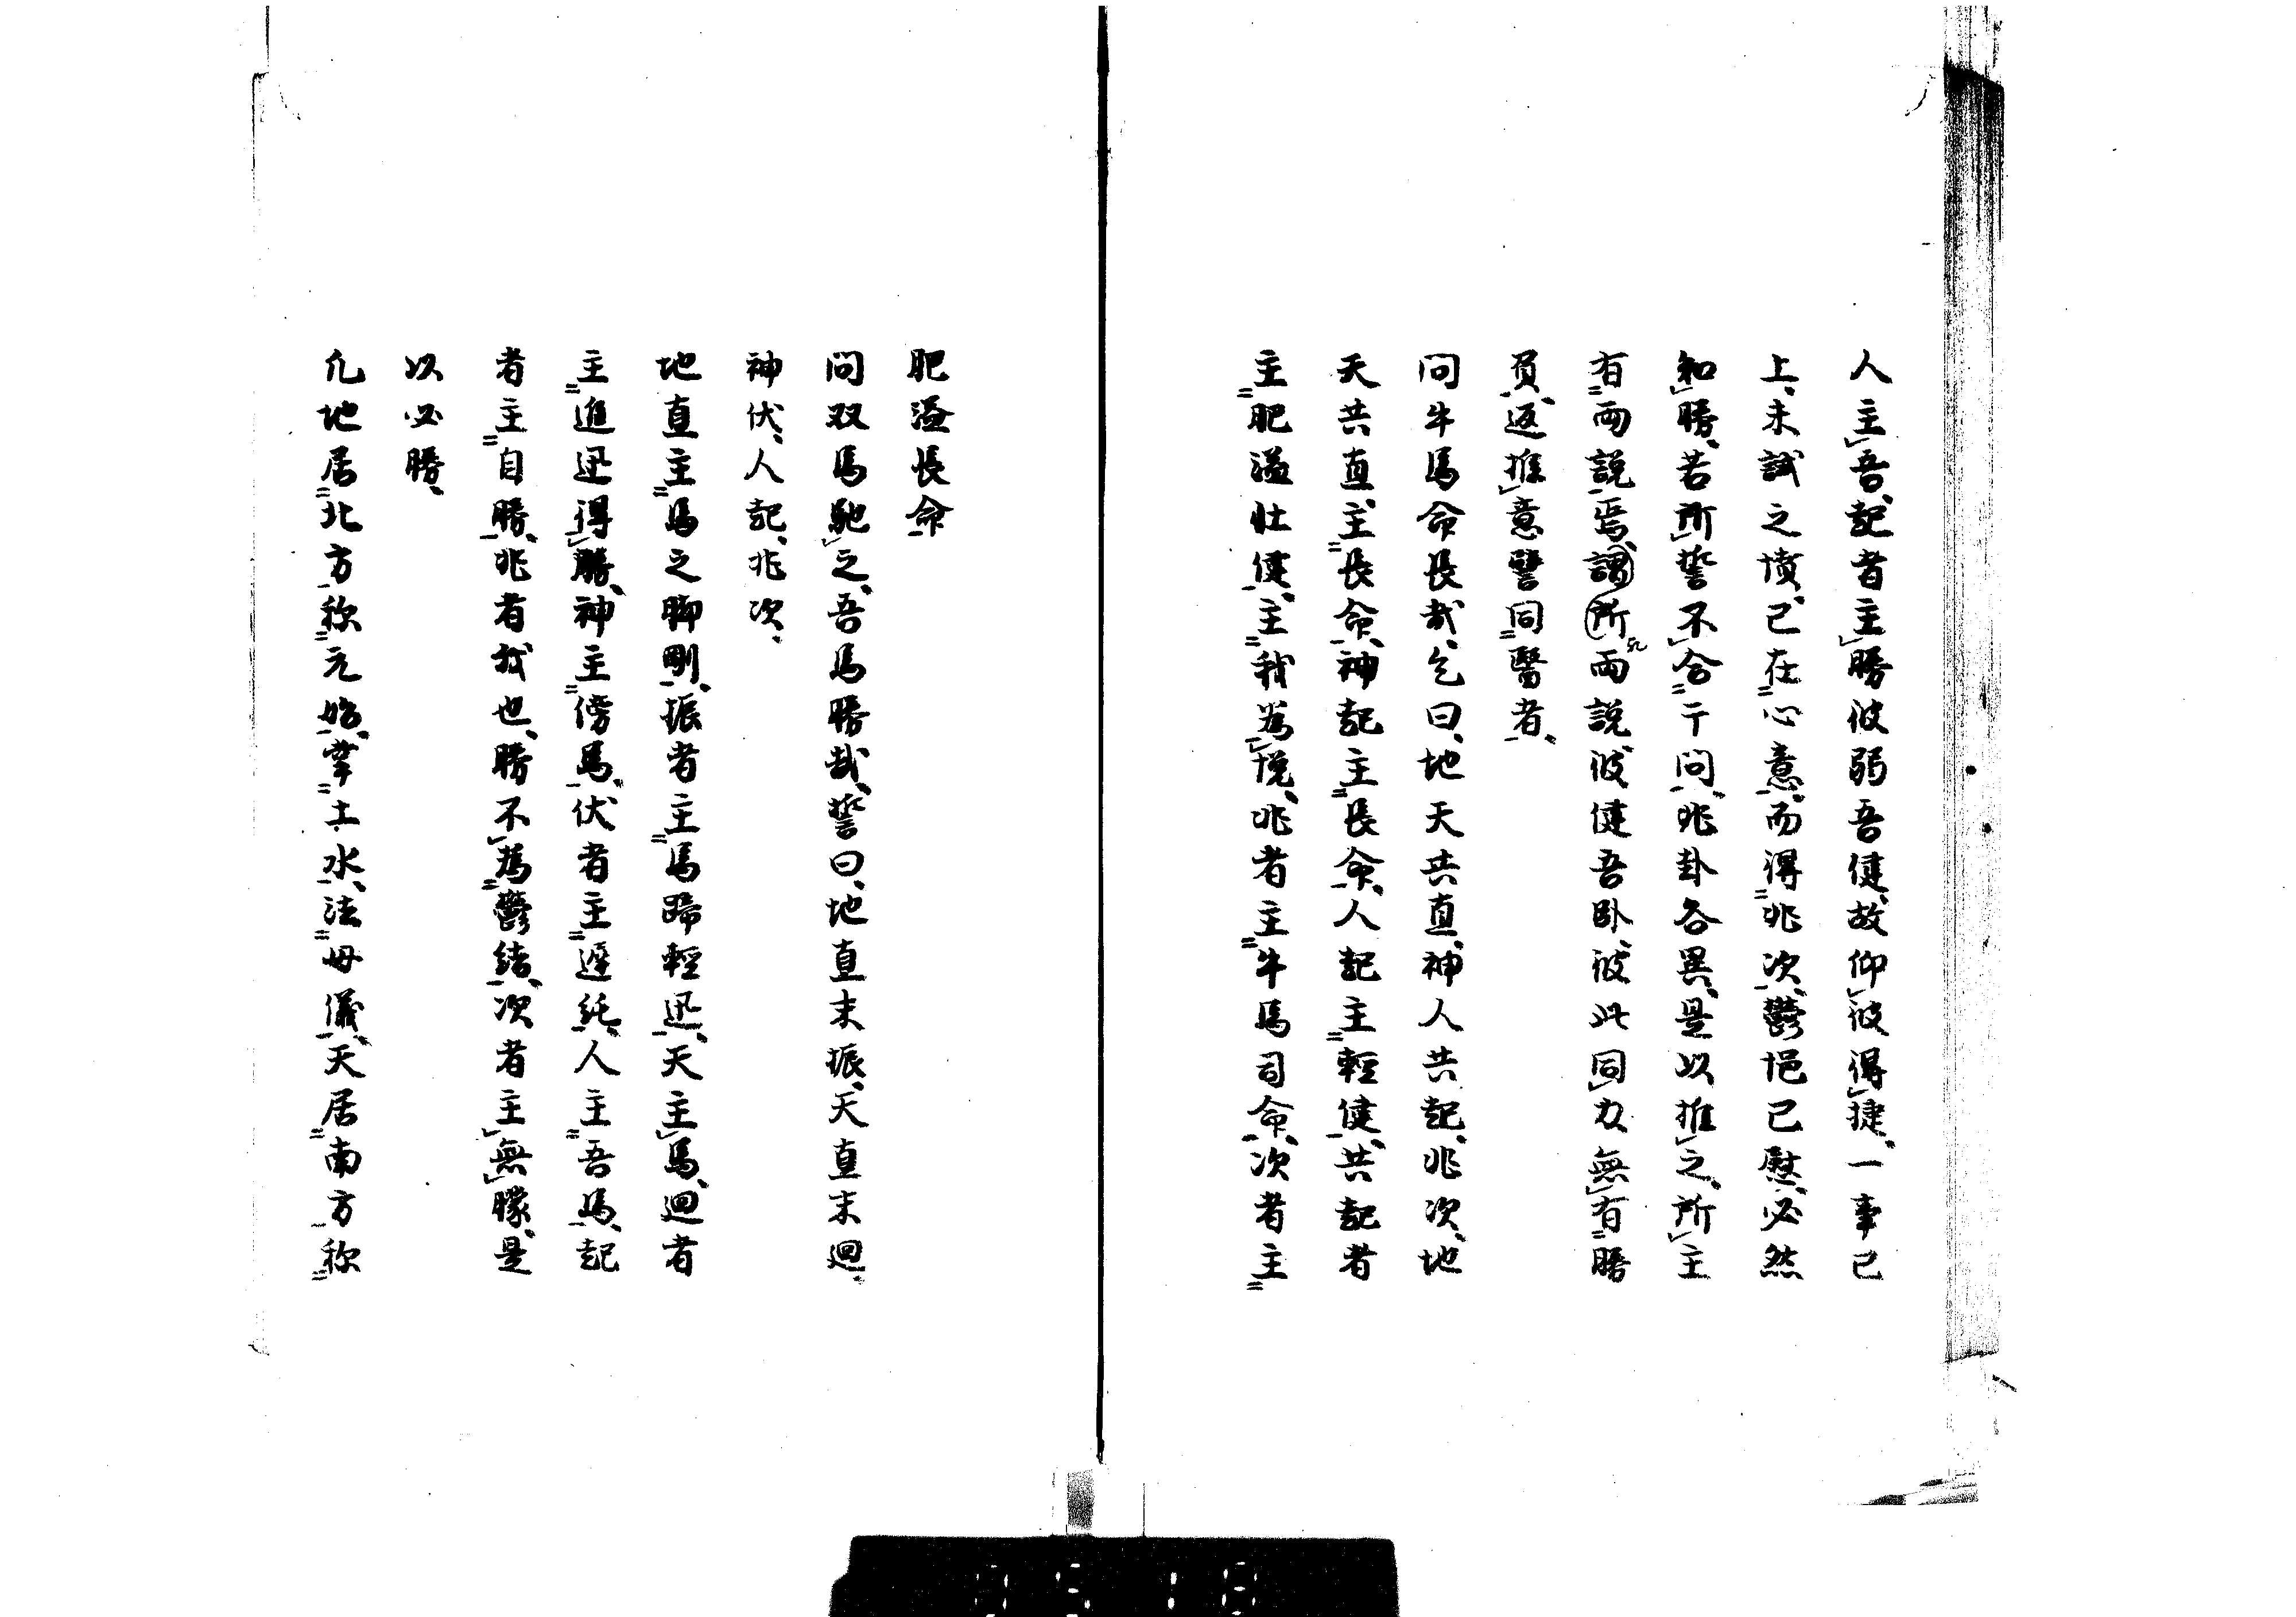 人主吾、起者主勝彼弱吾健、故仰彼得捷、一事已
上、未試之憤、已在心意、而得兆次、鬱悒已慰、必然
知勝、若所誓不合干問、兆卦各異、是以推之、所主
有両説焉、謂所両説彼健吾臥、彼此同力無有勝
負、返推意譬同醫者、
問牛馬命長哉、乞曰、地天共直、神人共起、兆次、地
天共直、主長命、神起主長命、人起主軽健、共起者
主肥溢壮健、主我為悦、兆者主牛馬司命、次者主
肥溢長命
問双馬馳之、吾馬勝哉、誓曰、地直末振、天直末廻、
神伏、人起、兆次、
地直主馬之脚剛、振者主馬蹄軽迅、天主馬、廻者
主進迅得勝、神主傍馬、伏者主遅純、人主吾馬、起
者主自勝、兆者我也、勝不為鬱結、次者主無朦、是
以必勝、
凡地居北方称元始、掌土水、法母儀、天居南方称